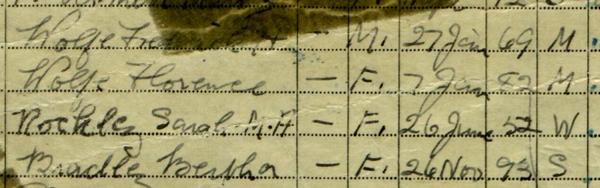 Wolfe M. 27 Jan 69 M
Wolfe Florence — F. 7 Jan 82 M
Rockley Sarah M. H — F. 26 June 52 W
Bradley Bertha — F. 26 Nov 93 S